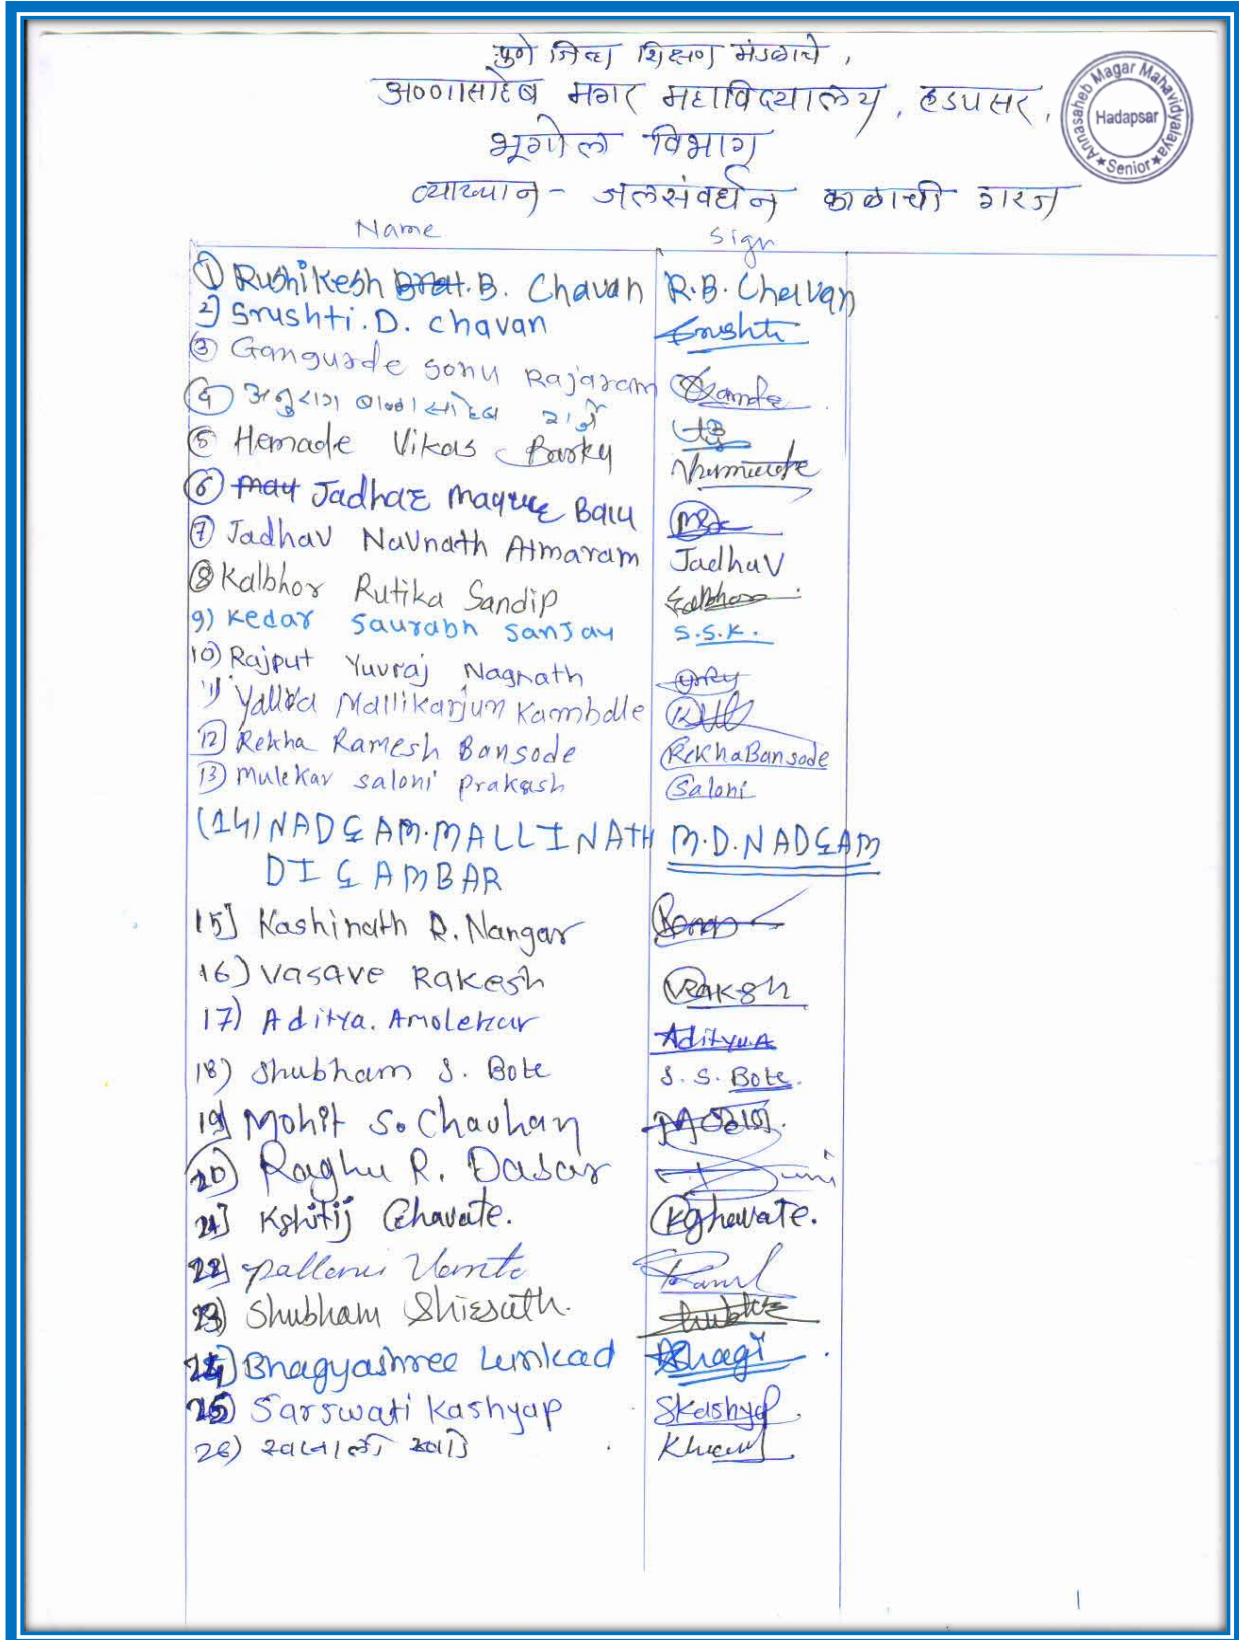 पुणे जिल्हा शिक्षण मंडळाचे,
अण्णासाहेब मगर महाविद्यालय, हडपसर,
भूगोल विभाग
व्याख्यान - जलसंवर्धन काळाची गरज
Annasaheb Magar Mahavidyalaya
Hadapsar
★ Senior ★
Name Sign
1 Rushikesh B. Chavan R.B. Chavan
2) Srushti. D. Chavan Srushti
3 Gangurde Sonu Rajaram
4 अनुराग
5 Hemade Vikas Barky
6 Jadhav Balu
7 Jadhav Navnath Atmaram Jadhav
8 Kalbhor Rutika Sandip Kalbhor
9) Kedar Saurabh Sanjay S.S.K.
10) Rajput Yuvraj Nagnath
11) Mallikarjun Kamballe
12) Rekha Ramesh Bansode Rekha Bansode
13) Mulekar Saloni Prakash Saloni
(14) NADGAM. MALLINATH M.D. NADGAM
DIGAMBAR
15] Kashinath R. Nangar
16) Vasave Rakesh
17) Aditya. Amolekar Aditya.A
18) Shubham S. Bote S. S. Bote.
19] Mohit S. Chavhan
20) Raghu R. Dasar
21] Kshitij Ghavate. K ghavate.
22]
23) Shubham Shirsath.
24) Bhagyashree Lunkad Bhagi
25) Sarswati Kashyap SKashyap
26)